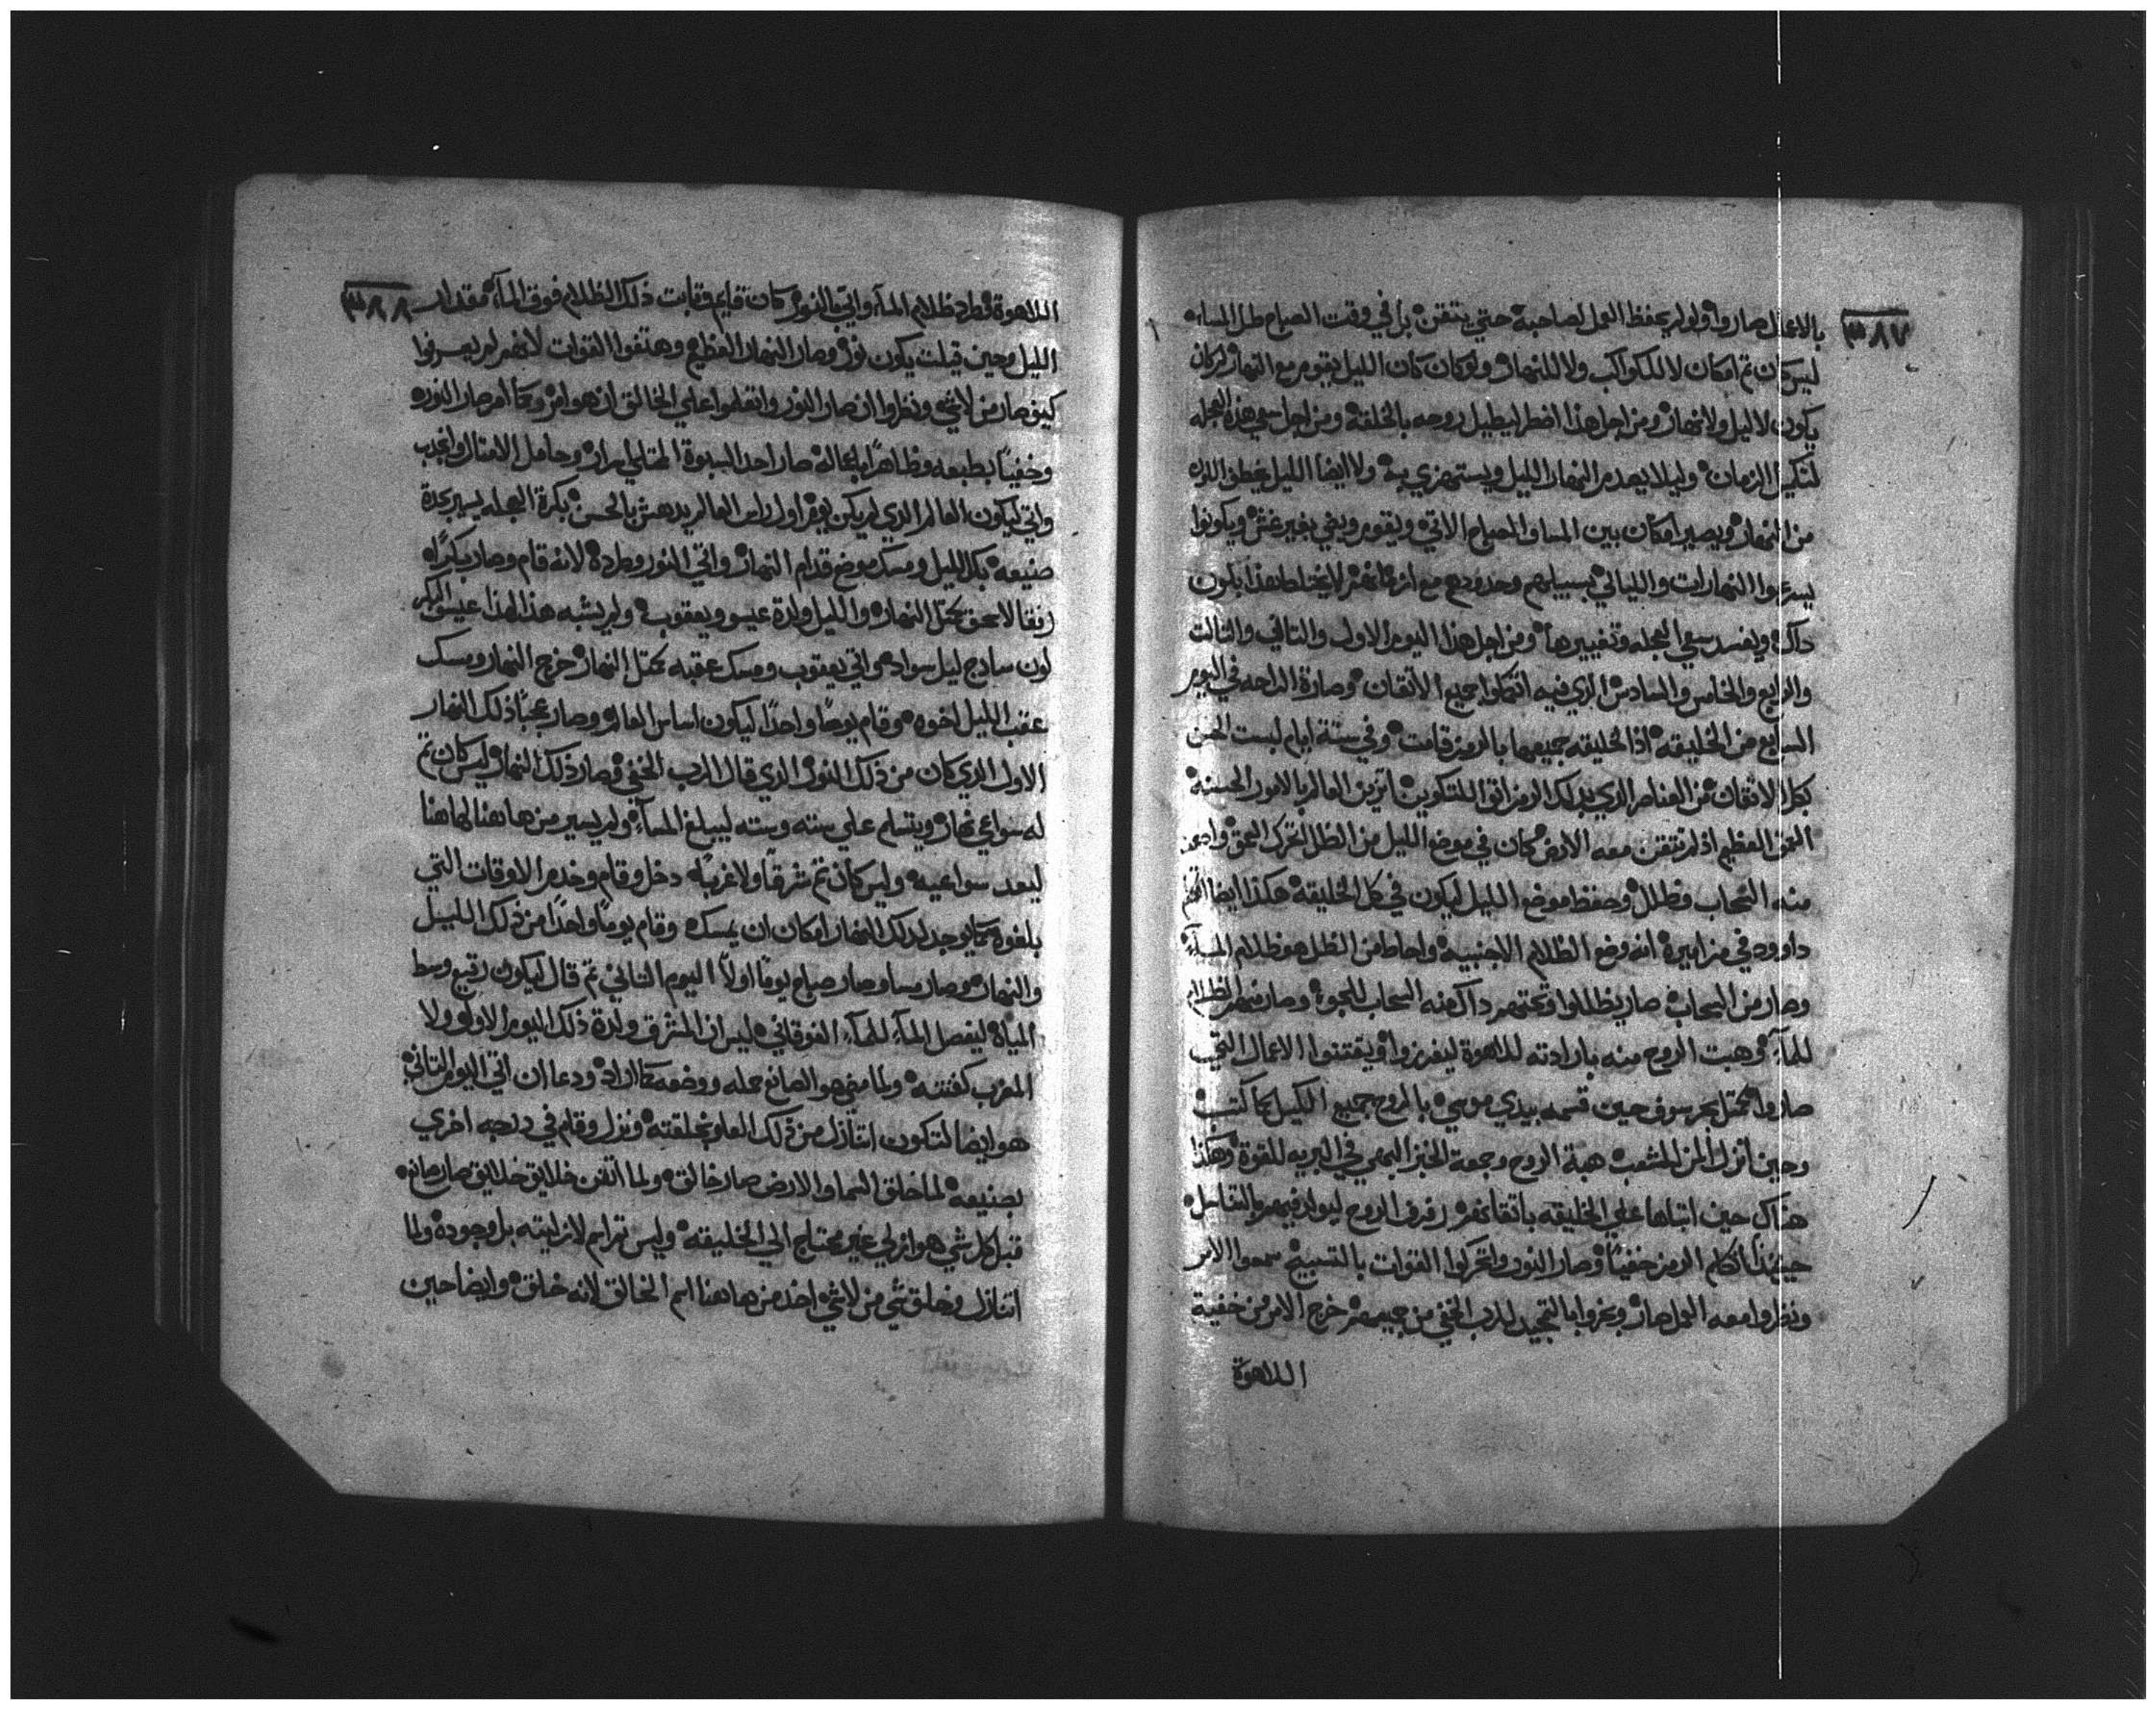 ٣٨٧
بالاعمال صاروا ولو لم يحفظ العمل لصاحبه حتي يتقن بل في وقت الصباح طل المساء
ليس كان تم امكان لا للكواكب ولا للنهار ولو كان كان الليل يقوم مع النهار لم كان
يكون لا ليل ولا نهار ومن اجل هذا اضطر ليطيل روحه بالخلقة ومن اجل سعي هذه العجله
لتكيل الزمان وليلا يعدم النهار الليل ويستهزي به ولا ايضا الليل يخطف اللون
من النهار ويصير امكان بين المسا والصباح الاتي ويقوم ويفي بغير غش ويكونوا
يسرعوا النهارات والليالي بسبيلهم وحدودهم مع ازمانهم لا يختلط هذا بلون
داك ويفسد سعي العجله وتغييرها ومن اجل هذا اليوم الاول والتاني والتالت
والرابع والخامس والسادس الذي فيه اتكملوا جميع الاتقان وصارة الراحه في اليوم
السابع من الخليقه اذ الخليقه جميعها بالرمز قامت وفي ستة ايام لبست الحسن
بكل الاتقان من العناصر الذي بذلك الرمز اتوا للتكوين اتزين العالم بالامور الحسنة
العمق العظيم اذ لم تتقن معه الارض كان في موضع الليل من الظل اتحرك العمق
منه السحاب وظلل وحفظ موضع الليل ليكون في كل الخليقة هكذا ايضا
داوود في مزاميره انه وضع الظلام الاجنبية واحاط من الظل هو ظلام المآء
وصار من السحاب صار يظللوا وتحتهم داك منه السحاب للجو وصار منهم الظلام
للمآء وهبت الروح منه بارادته للاهوة ليفرزوا ويقتنوا الاعمال التي
صاروا كمتل بحر سوف حين قسمه بيدي موسي بالروح جميع الكيل كما كتب
وحين انزل المن للشعب هبة الروح وجمعة الخبز البهي في البريه للقوة وهكذا
هناك حين ابتلاها علي الخليقه باتقانهم رفرف الروح ليولد فيهم بالتناسل
حينئذ اتكلم الرمز خفيًا وصار النور واتحركوا القوات بالتسبيح سمعوا الامر
ونظروا معه العمل صار وبخروا بالتمجيد للرب الخفي من جميعهم خرج الامر من خفية
اللاهوة
٣٨٨
اللاهوة وطرد ظلام المآء واتي النور كان قايم وتابت ذلك الظلام فوق المآء مقدار
الليل وحين قيلت يكون نور وصار النهار العظيم وهتفوا القوات لانهم لم يعرفوا
كيف صار من لا شي ونظروا ان صار النور واتعلموا علي الخالق ان هو امر ومع امر صار النور
وخفيًا بطبعه وظاهرًا بافعاله صار احد النبوة الممتلي اسرار وحامل الامتال وانجدب
واتي ليكون العالم الذي لم يكن يوم اول راس العالم يدهش بالحسن بكرة العجله يسير بجدة
صنيعه بكل الليل ومسك موضع قدام النهار واتي النور وطرده لانه قام وصار بكرًا
رفقا لاسحق كمتل النهار والليل ولدة عيسو ويعقوب ولم يشبه هذا لهذا عيسو البكر
لون سادج ليل سواد واتي يعقوب ومسك عقبه كمتل النهار خرج النهار ومسك
عقب الليل اخوه وقام يومًا واحدًا ليكون اساس العالم وصار عجبًا ذلك النهار
الاول الذي كان من ذلك النور الذي قال الرب الخفي وصار ذلك النهار ليس كان تم
له سواعي نهار ويتسلم علي سته وسته ليبلغ المسآء ولم يسير من هاهنا لهاهنا
ليعد سواعيه وليس كان تم شرقًا ولا غربًا دخل وقام وخدم الاوقات التي
بلغوه كما يوجد لذلك النهار امكان ان يمسكه وقام يومًا واحدًا من ذلك الليل
والنهار وصار مسا وصار صباح يومًا اولًا اليوم التاني تم قال ليكون رقيع وسط
المياه ليفصل المآء للمآء الفوقاني ليس ان المشرق ولدة ذلك اليوم الاول ولا
المغرب كفتته ولما مضي هو الصانع حمله ووضعه كما اراد ودعا ان اتي اليوم التاني
هو ايضا لتكون اتنازل من ذلك العلو بخلقته ونزل وقام في درجه اخري
بصنيعه لما خلق السما والارض صار خالق ولما اتقن خلايق خلايق صار صانع
قبل كل شي هو ازلي غير محتاج الي الخليقه وليس تم اسم لازليته بل وجوده ولما
اتنازل وخلق شي من لا شي اخذ من هاهنا اسم الخالق لانه خلق وايضا حين